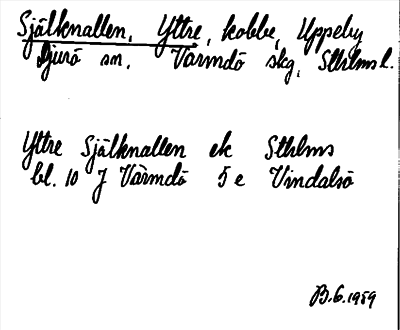 Själknallen, Yttre, kobbe, Uppeby
Djurö sn, Värmdö skg, Sthlms l.
Yttre Själknallen ek Sthlms
bl. 10 J Värmdö 5 e Vindalsö
B.G. 1959